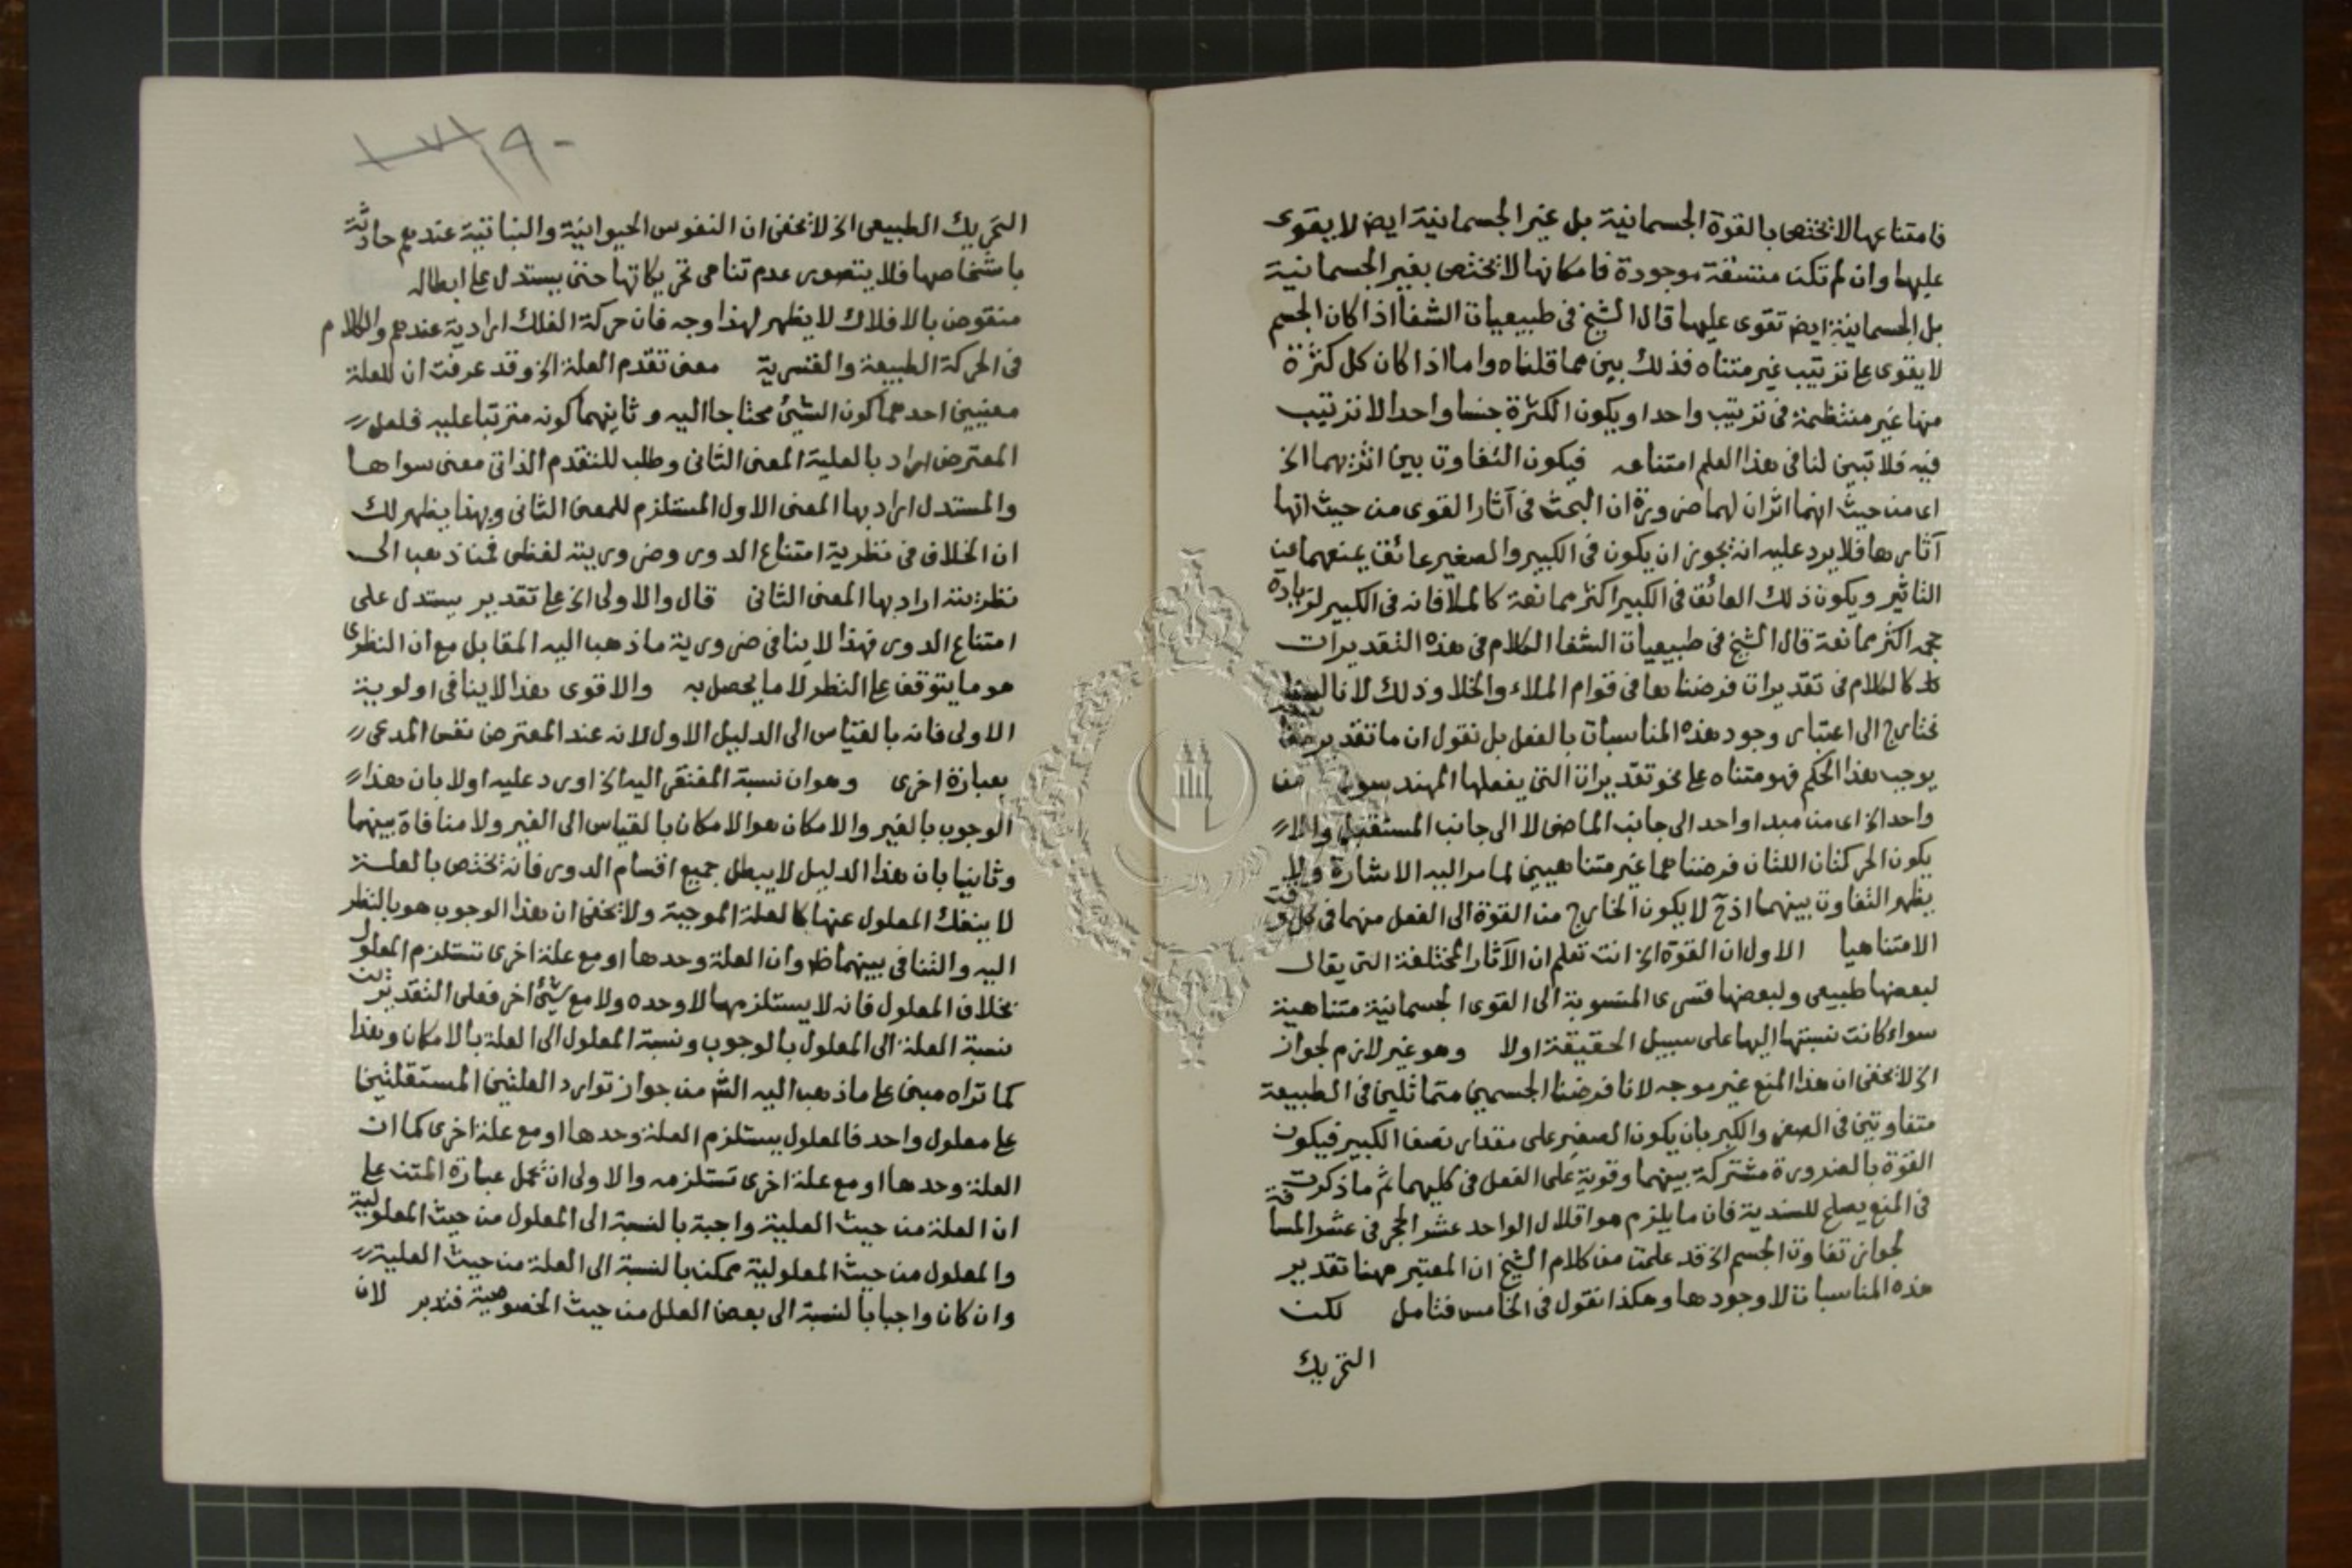 فامتناعها لا تختص بالقوة الجسمانية بل غير الجسمانية ايض لا يقوى
عليها وان لم تكن متسقة موجودة فامكانها لا تختص بغير الجسمانية
بل الجسمانية ايض تقوى عليها قال الشيخ فى طبيعيات الشفا اذا كان الجسم
لا يقوى على ترتيب غير متناه فذلك بين مما قلناه واما اذا كان كل كثرة
منها غير منتظمة فى ترتيب واحد او يكون الكثرة جنسا واحدا لا ترتيب
فيه فلا تبين لنا فى هذا العلم امتناعه فيكون التفاوت بين اثريهما الخ
اى من حيث انهما اثران لهما ضرورة ان البحث فى آثار القوى من حيث انها
آثارها فلا يرد عليه انه يجوز ان يكون فى الكبير والصغير عائق يمنعهما عن
التاثير ويكون ذلك العائق فى الكبير اكثر ممانعة كالملا فانه فى الكبير لزيادة
حجمه اكثر ممانعة قال الشيخ فى طبيعيات الشفا الكلام فى هذه التقديرات
كالكلام فى تقديرات فرضناها فى قوام الملاء والخلا وذلك لانا لسنا
نحتاج الى اعتبار وجود هذه المناسبات بالفعل بل نقول ان ما تقديره
يوجب هذا الحكم فهو متناه على نحو تقديرات التى يفعلها المهندسون من
واحد الخ اى من مبدا واحد الى جانب الماضى لا الى جانب المستقبل والا
يكون الحركتان اللتان فرضناهما غير متناهيين لما مر اليه الاشارة ولا
يظهر التفاوت بينهما اذ ح لا يكون الخارج من القوة الى الفعل منهما فى كل وقت
الا متناهيا الاول ان القوة الخ انت تعلم ان الآثار المختلفة التى يقال
لبعضها طبيعى ولبعضها قسرى المنسوبة الى القوى الجسمانية متناهية
سواء كانت نسبتها اليها على سبيل الحقيقة او لا وهو غير لازم لجواز
الخ لا يخفى ان هذا المنع غير موجه لانا فرضنا الجسمين متماثلين فى الطبيعة
متفاوتين فى الصغر والكبر بان يكون الصغير على مقدار نصف الكبير فيكون
القوة بالضرورة مشتركة بينهما وقوية على الفعل فى كليهما ثم ما ذكرت
فى المنع يصلح للسندية فان ما يلزم هو اقلال الواحد عشر الحجر فى عشر المسافة
لجواز تفاوت الجسم الخ قد علمت من كلام الشيخ ان المعتبر ههنا تقدير
هذه المناسبات لا وجودها وهكذا نقول فى الخامس فتامل لكن
التحريك
١٩٠
التحريك الطبيعى الخ لا يخفى ان النفوس الحيوانية والنباتية عندهم حادثة
باشخاصها فلا يتصور عدم تناهى تحريكاتها حتى يستدل على ابطاله
منقوض بالافلاك لا يظهر لهذا وجه فان حركة الفلك ارادية عندهم والكلام
فى الحركة الطبيعة والقسرية معنى تقدم العلة الخ وقد عرفت ان للعلة
معنيين احدهما كون الشئ محتاجا اليه وثانيهما كونه مترتبا عليه فلعل
المعترض اراد بالعلية المعنى الثانى وطلب للتقدم الذاتى معنى سواها
والمستدل اراد بها المعنى الاول المستلزم للمعنى الثانى وبهذا يظهر لك
ان الخلاف فى نظرية امتناع الدور وضروريته لفظى فمن ذهب الى
نظريته اراد بها المعنى الثانى قال والاولى الخ على تقدير يستدل على
امتناع الدور فهذا لا ينافى ضرورية ما ذهب اليه المقابل مع ان النظرى
هو ما يتوقف على النظر لا ما يحصل به والاقوى هذا لا ينافى اولوية
الاولى فانه بالقياس الى الدليل الاول لانه عند المعترض نفس المدعى
بعبارة اخرى وهو ان نسبة المفتقر اليه الخ اورد عليه اولا بان هذا
الوجوب بالغير والامكان هو الامكان بالقياس الى الغير ولا منافاة بينهما
وثانيا بان هذا الدليل لا يبطل جميع اقسام الدور فانه تختص بالعلة
لا ينفك المعلول عنها كالعلة الموجبة ولا يخفى ان هذا الوجوب هو بالنظر
اليه والتنافى بينهما ظ وان العلة وحدها او مع علة اخرى تستلزم المعلول
بخلاف المعلول فانه لا يستلزمها لا وحده ولا مع شئ اخر فعلى التقديرين
نسبة العلة الى المعلول بالوجوب ونسبة المعلول الى العلة بالامكان وهذا
كما تراه مبنى على ما ذهب اليه الش من جواز توارد العلتين المستقلتين
على معلول واحد فالمعلول يستلزم العلة وحدها او مع علة اخرى كما ان
العلة وحدها او مع علة اخرى تستلزمه والاولى ان تحمل عبارة المتن على
ان العلة من حيث العلية واجبة بالنسبة الى المعلول من حيث المعلولية
والمعلول من حيث المعلولية ممكن بالنسبة الى العلة من حيث العلية
وان كان واجبا بالنسبة الى بعض العلل من حيث الخصوصية فتدبر لان